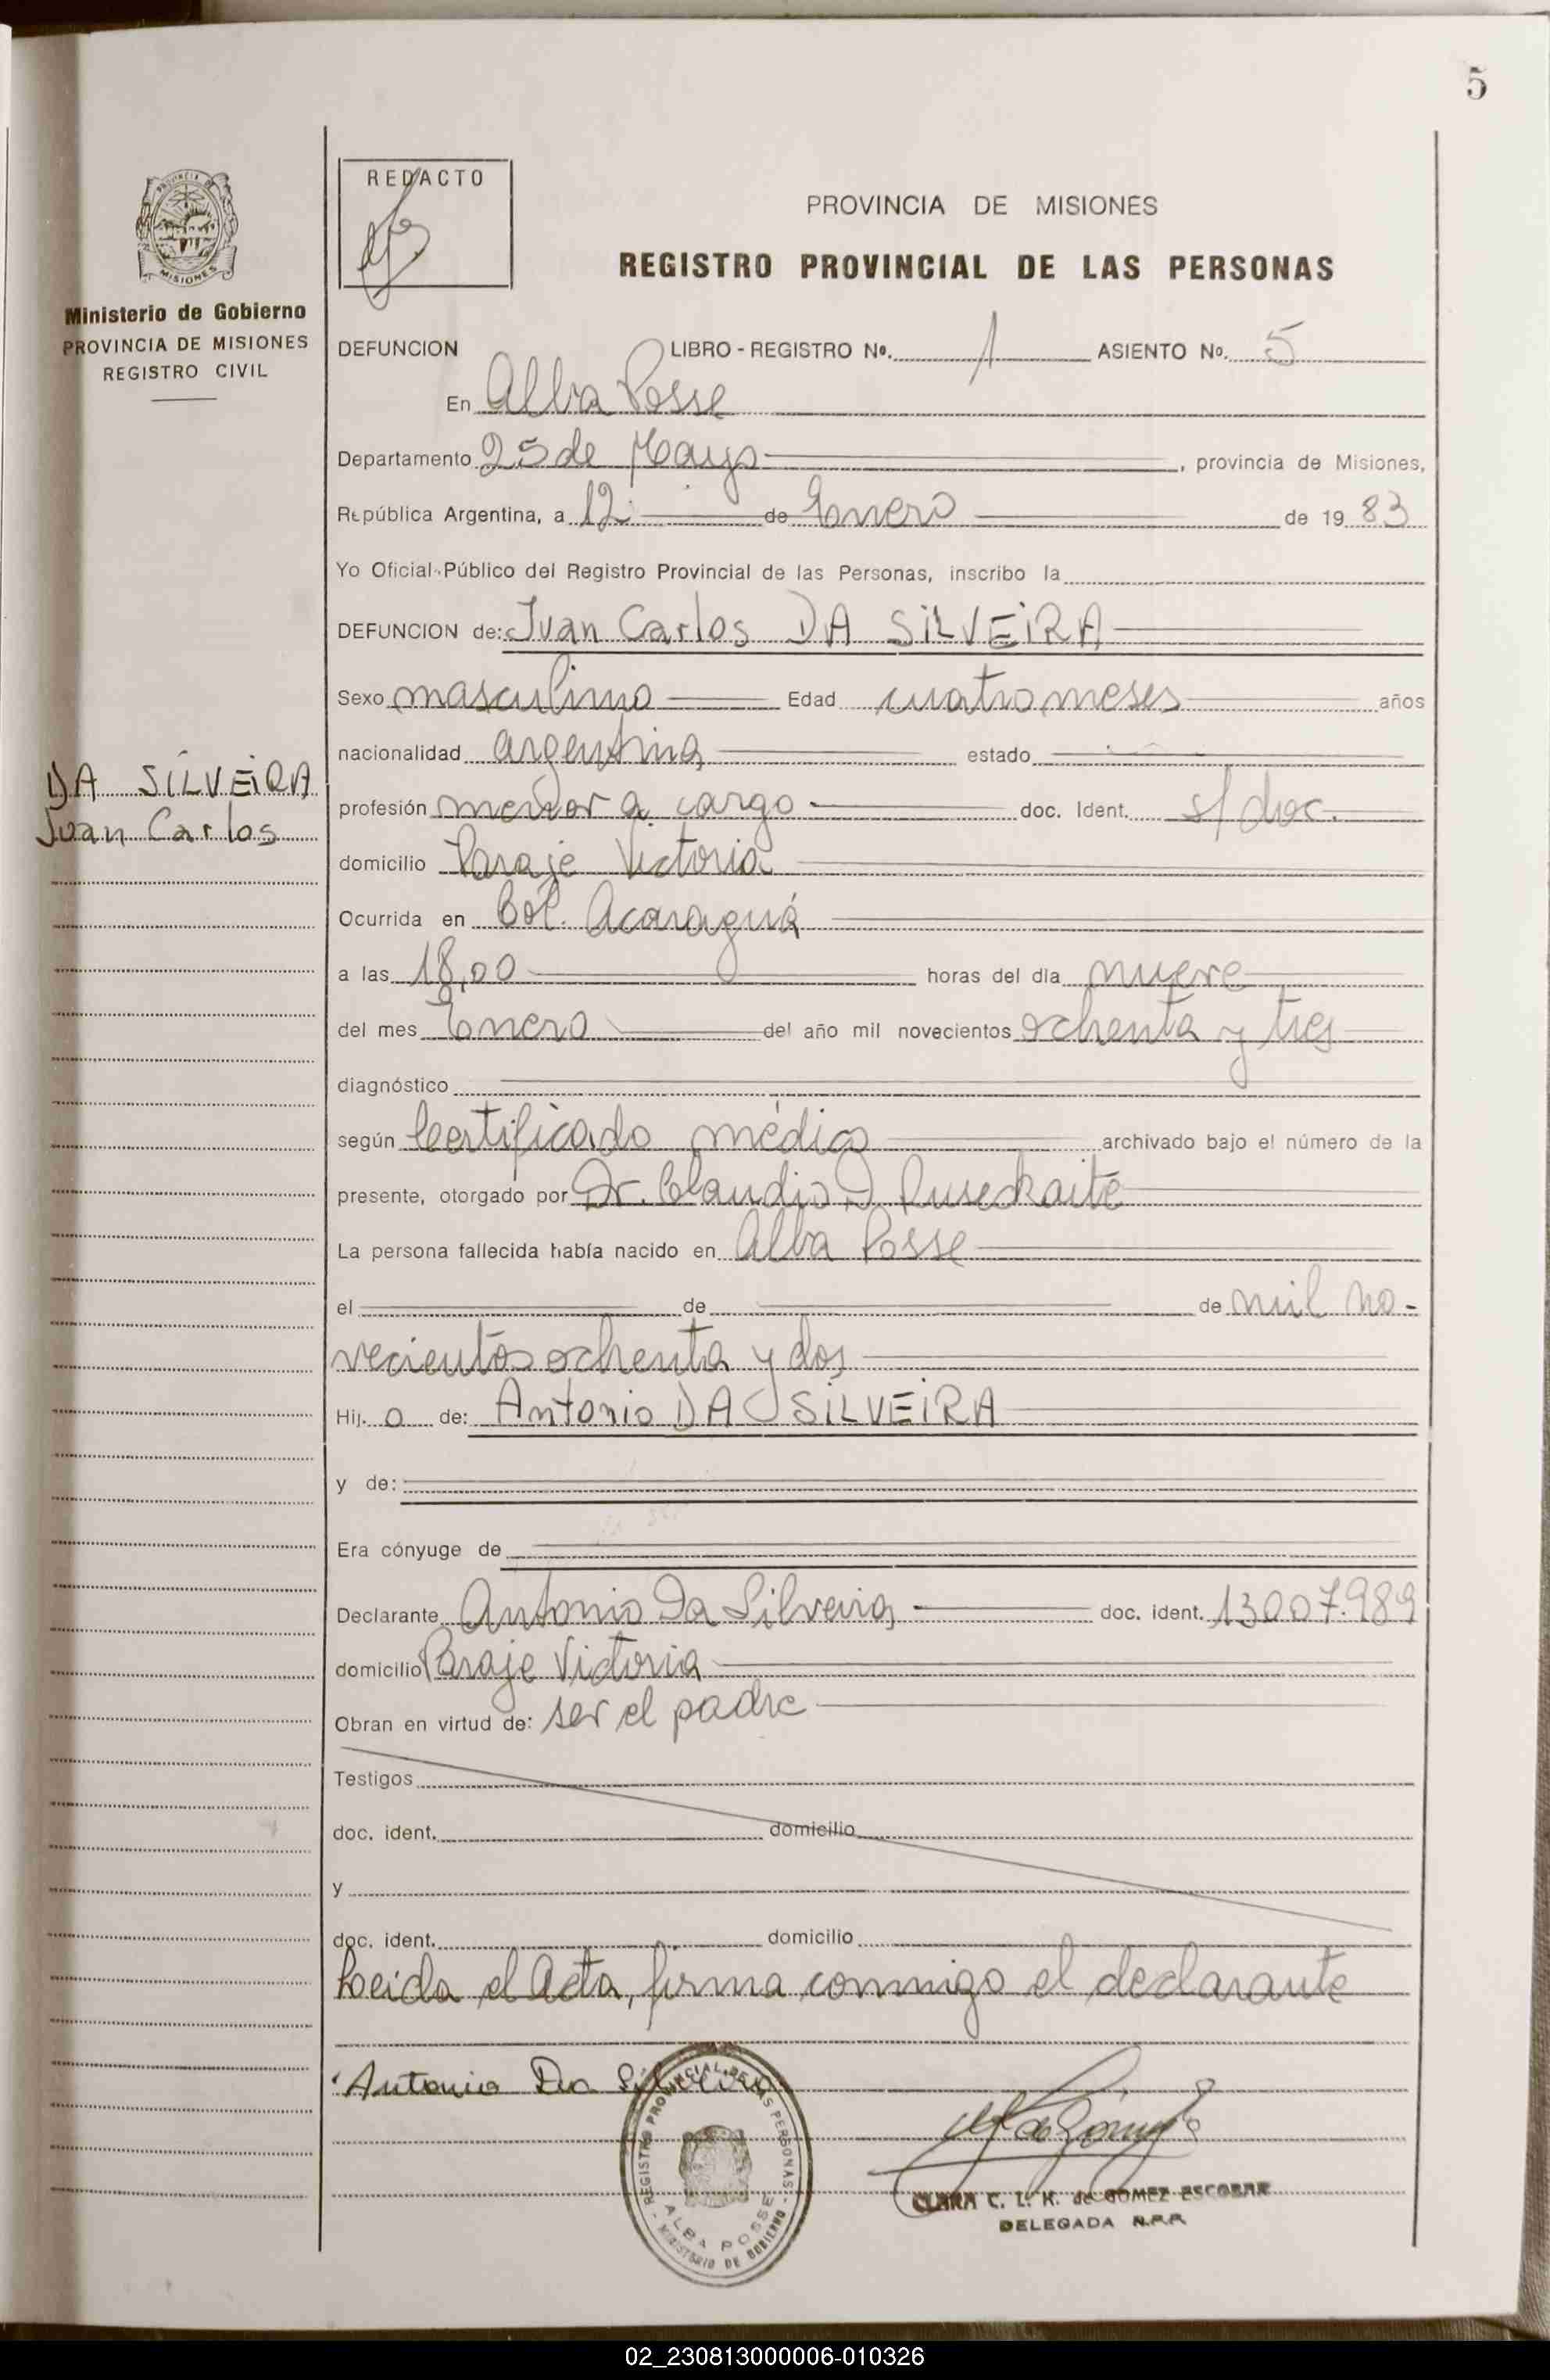 5
REDACTO
PROVINCIA DE MISIONES
REGISTRO PROVINCIAL DE LAS PERSONAS
MISIONES
Ministerio de Gobierno
PROVINCIA DE MISIONES
REGISTRO CIVIL
DEFUNCION LIBRO - REGISTRO No. 1 ASIENTO No. 5
En Alba Posse
Departamento 25 de Mayo, provincia de Misiones,
República Argentina, a 12 de Enero de 19 83
Yo Oficial Público del Registro Provincial de las Personas, inscribo la
DEFUNCION de: Juan Carlos DA SILVEIRA
Sexo masculino Edad cuatro meses años
nacionalidad argentina estado
DA SILVEIRA
Juan Carlos
profesión menor a cargo doc. Ident. s/doc.
domicilio Paraje Victoria
Ocurrida en Col. Acaraguá
a las 18,00 horas del día nueve
del mes Enero del año mil novecientos ochenta y tres
diagnóstico
según Certificado médico archivado bajo el número de la
presente, otorgado por Dr. Claudio
La persona fallecida había nacido en Alba Posse
el de de mil no-
vecientos ochenta y dos
Hij. o de: Antonio DA SILVEIRA
y de:
Era cónyuge de
Declarante Antonio Da Silveira doc. ident. 13007.989
domicilio Paraje Victoria
Obran en virtud de: ser el padre
Testigos
doc. ident. domicilio
y
doc. ident. domicilio
Leida el Acta, firma conmigo el declarante
Antonio Da Silveira
REGISTRO PROVINCIAL DE LAS PERSONAS
ALBA POSSE
MINISTERIO DE GOBIERNO
CLARA C. L. K. de GOMEZ ESCOBAR
DELEGADA R.P.P.
02_230813000006-010326